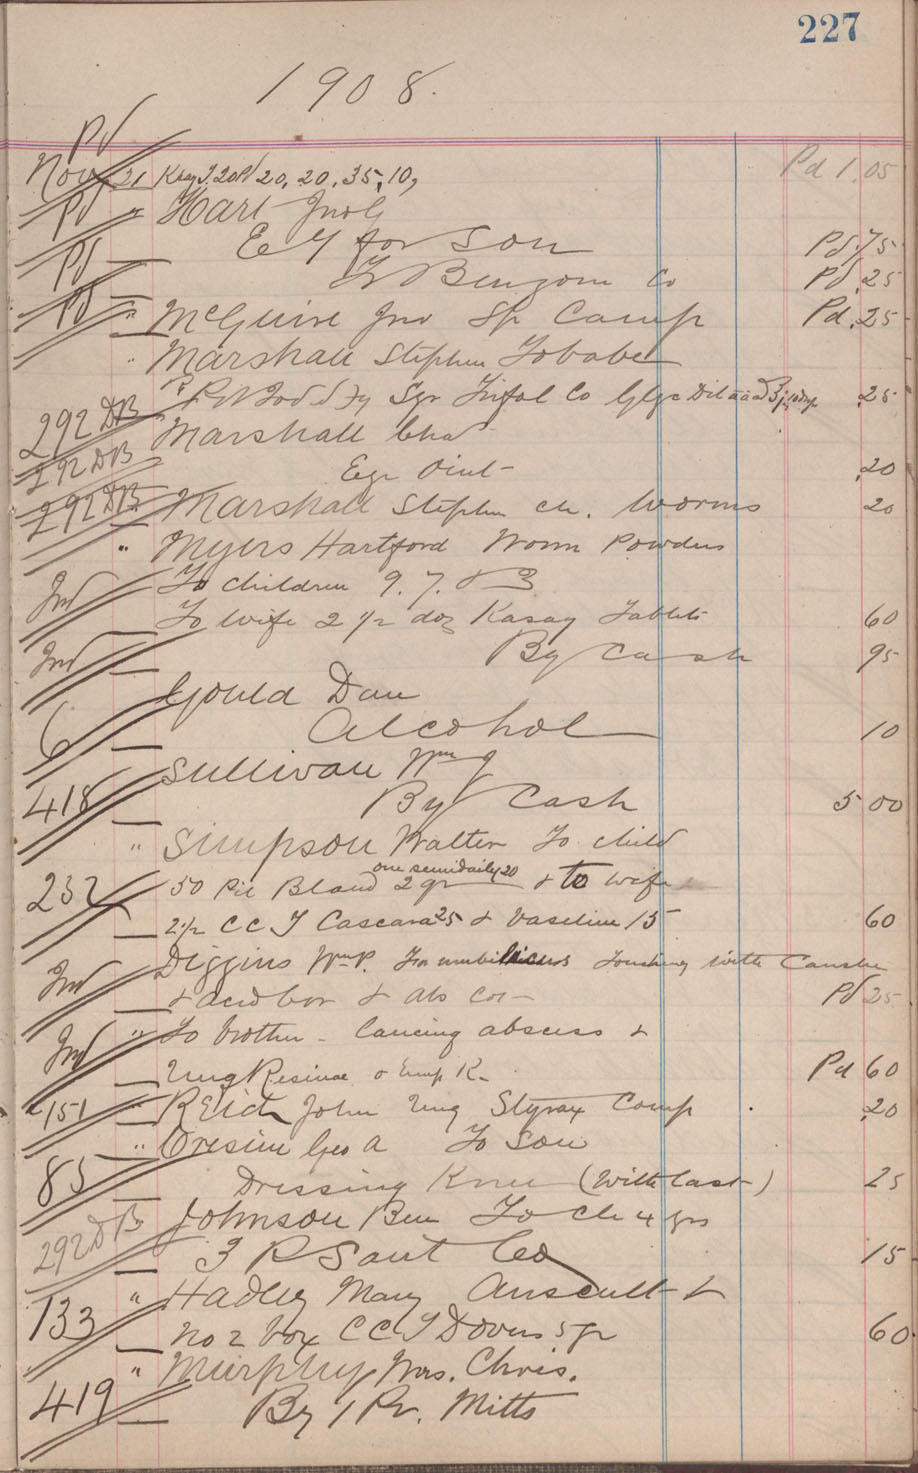 227
1908.
Pd
Nov 21 20, 20, 35, 10, Pd 1.05
Pd " Hart Jno
E Y for Son Pd .75
Pd Co Pd .25
Pd " McGuire Jno Sp Camp Pd .25
" Marshall Stephen To babe
Syr Co .25
292 DB Marshall Chas
292 DB Eye Oint .20
292 DB Marshall Stephen ch. worms 20
" Myers Hartford Worm Powders
Ind To children 9. 7. & 3
To wife 2 1/2 doz Kasag Tablets 60
Ind By Cash 95
Gould Dan
6 Alcohol 10
Sullivan Wm J
418 By Cash 5 00
" Simpson Walter To child
232 50 Pil Bland 2 gr one semidaily 20 & to wife
2 1/2 CC T Cascara 25 & Vaseline 15 60
Diggins Wm P. For umbilicus Touching with Caustic
Ind & acid bor & abs cot Pd 25
Ind " To brother - lancing abscess &
Ung Resinae & Emp K Pd 60
151 " Reid John Ung Styrax Comp .20
" Geo A To son
85 Dressing Knee (With last) 25
Johnson Ben To ch 4 yrs
292 DB 3 P Sant Co 15
" Hadley Mary Auscult &
133 No 2 box CC T Dovers 5 gr 60
" Murphy Mrs. Chris.
419 By 1 Pr. Mitts